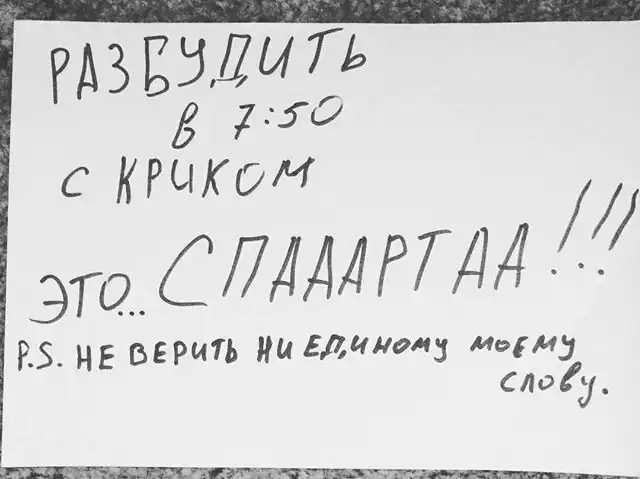 РАЗБУДИТЬ
в 7:50
С КРИКОМ
ЭТО... СПАААРТАА!!!
P.S. НЕ ВЕРИТЬ НИ ЕДИНОМУ МОЕМУ
СЛОВУ.